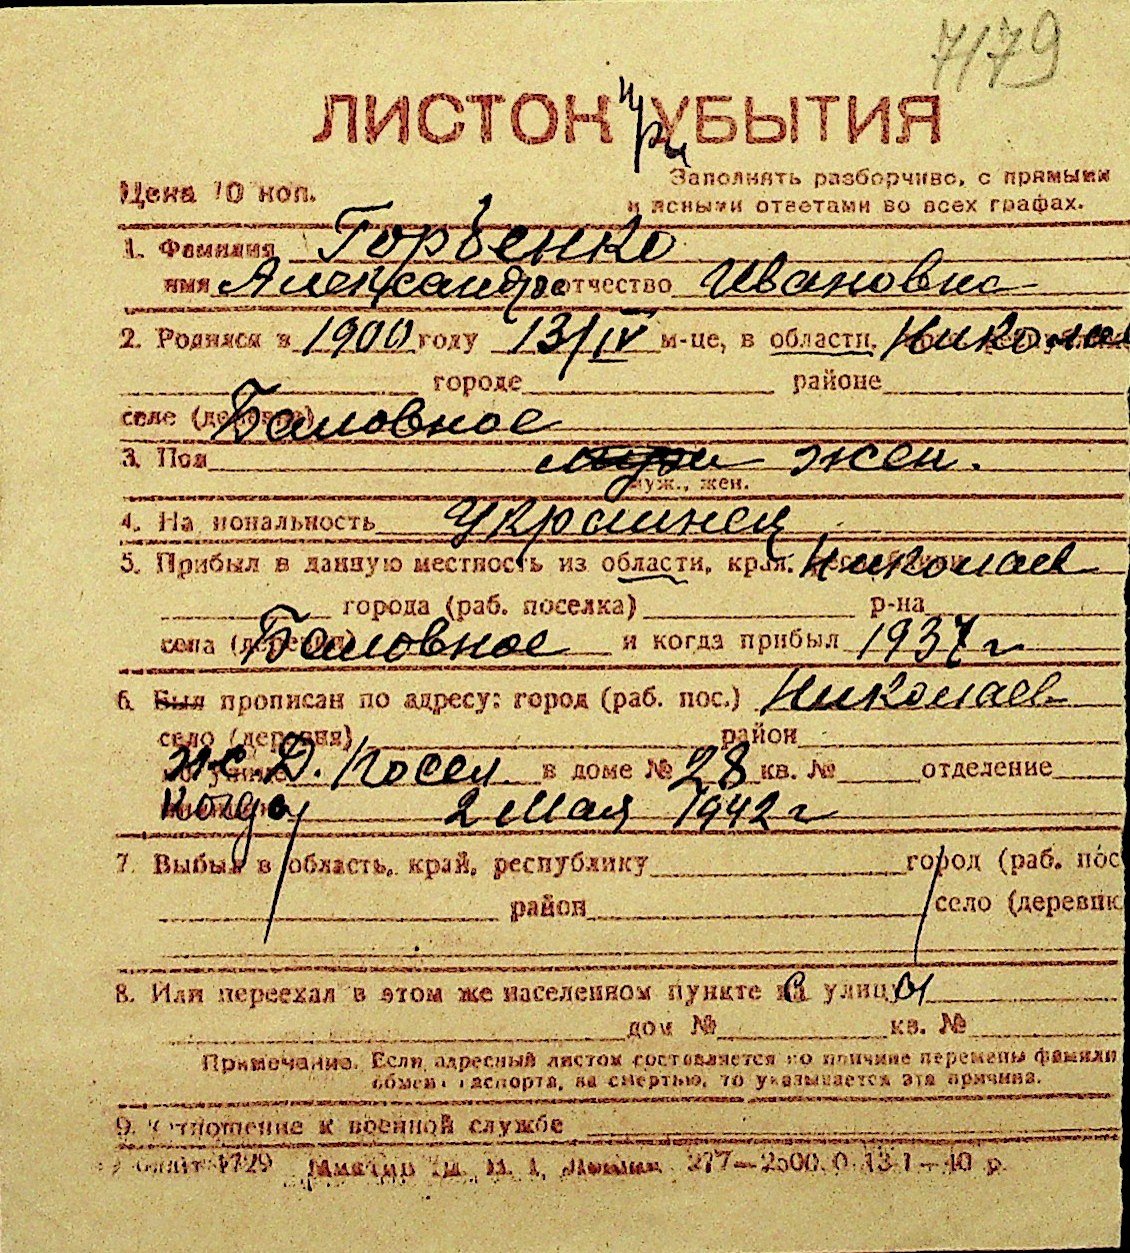 7179
ЛИСТОК при УБЫТИЯ
Цена 10 коп.
Заполнять разборчиво, с прямыми
и ясными ответами во всех графах.
1. Фамилия Горбенко
имя Александра отчество Ивановна
2. Родился в 1900 году 13/IV м-це, в области, Николаев
городе районе
селе (деревне) Баловное
3. Пол муж жен.
муж., жен.
4. Национальность Украинец
5. Прибыл в данную местность из области, края, Николаев
города (раб. поселка) р-на
села (деревни) Баловное и когда прибыл 1937 г
6. Был прописан по адресу: город (раб. пос.) Николаев
село (деревня) район
по улице Ж-С. Д. Посел. в доме № 28 кв. № отделение
Когда 2 Мая 1942 г
7. Выбыл в область, край, республику город (раб. пос
район село (деревню
8. Или переехал в этом же населенном пункте с улицы
дом № кв. №
Примечание. Если адресный листок составляется по причине перемены фамили
обмена паспорта, за смертью, то указывается эта причина.
9. Отношение к военной службе
4729 277—2500.0 13-1—40 р.